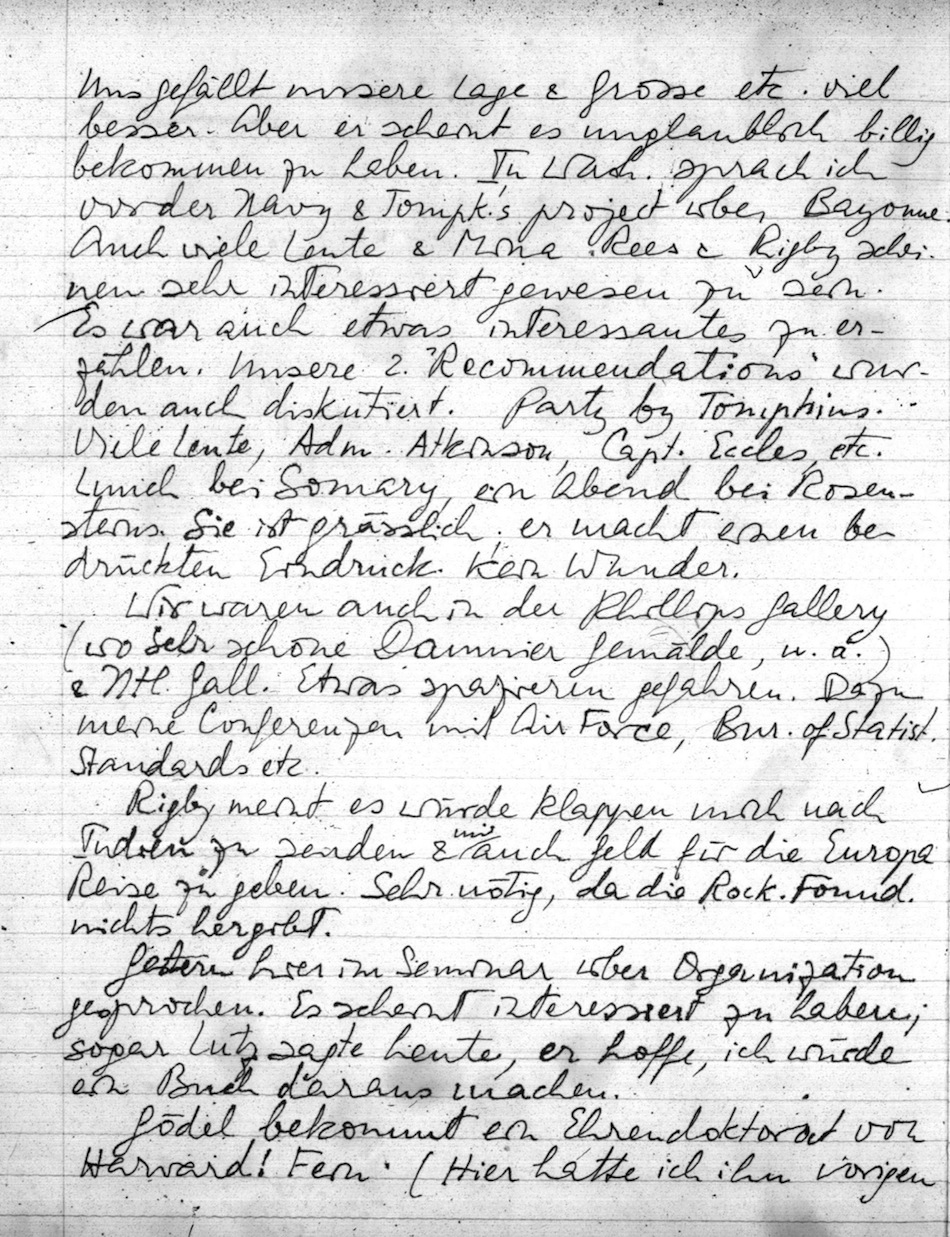 Uns gefällt unsere Lage & Grosse etc. viel
besser. Aber er scheint es unglaublich billig
bekommen zu haben. In Wash. sprach ich
vor der Navy & Tompk.'s project über Bayonne.
Auch viele Leute & Mina Rees & Rigby schei-
nen sehr interessiert gewesen zu sein.
Es war auch etwas interessantes zu er-
zählen. Unsere 2 "Recommendations" wur-
den auch diskutiert. Party by Tompkins.
Viele Leute, Adm. Atkinson, Capt. Eccles, etc.
Lunch bei Somary, ein Abend bei Rosen-
steins. Sie ist grässlich; er macht einen be
drückten Eindruck. Kein Wunder.
Wir waren auch in der Phillips Gallery
(wo sehr schöne Daumier Gemälde, u. a.)
& Ntl. Gall. Etwas spazieren gefahren. Dazu
meine Conferenzen mit Air Force, Bur. of Statist.
Standards etc.
Rigby meint es würde klappen mich nach
Indien zu senden & mir auch Geld für die Europa
Reise zu geben. Sehr nötig, da die Rock. Found.
nichts hergibt.
Gestern hier im Seminar über Organization
gesprochen. Es scheint interessiert zu haben;
sogar Lutz sagte heute, er hoffe, ich würde
ein Buch daraus machen.
Gödel bekommt ein Ehrendoktorat von
Harward! Fein. (Hier hatte ich ihn vorigen